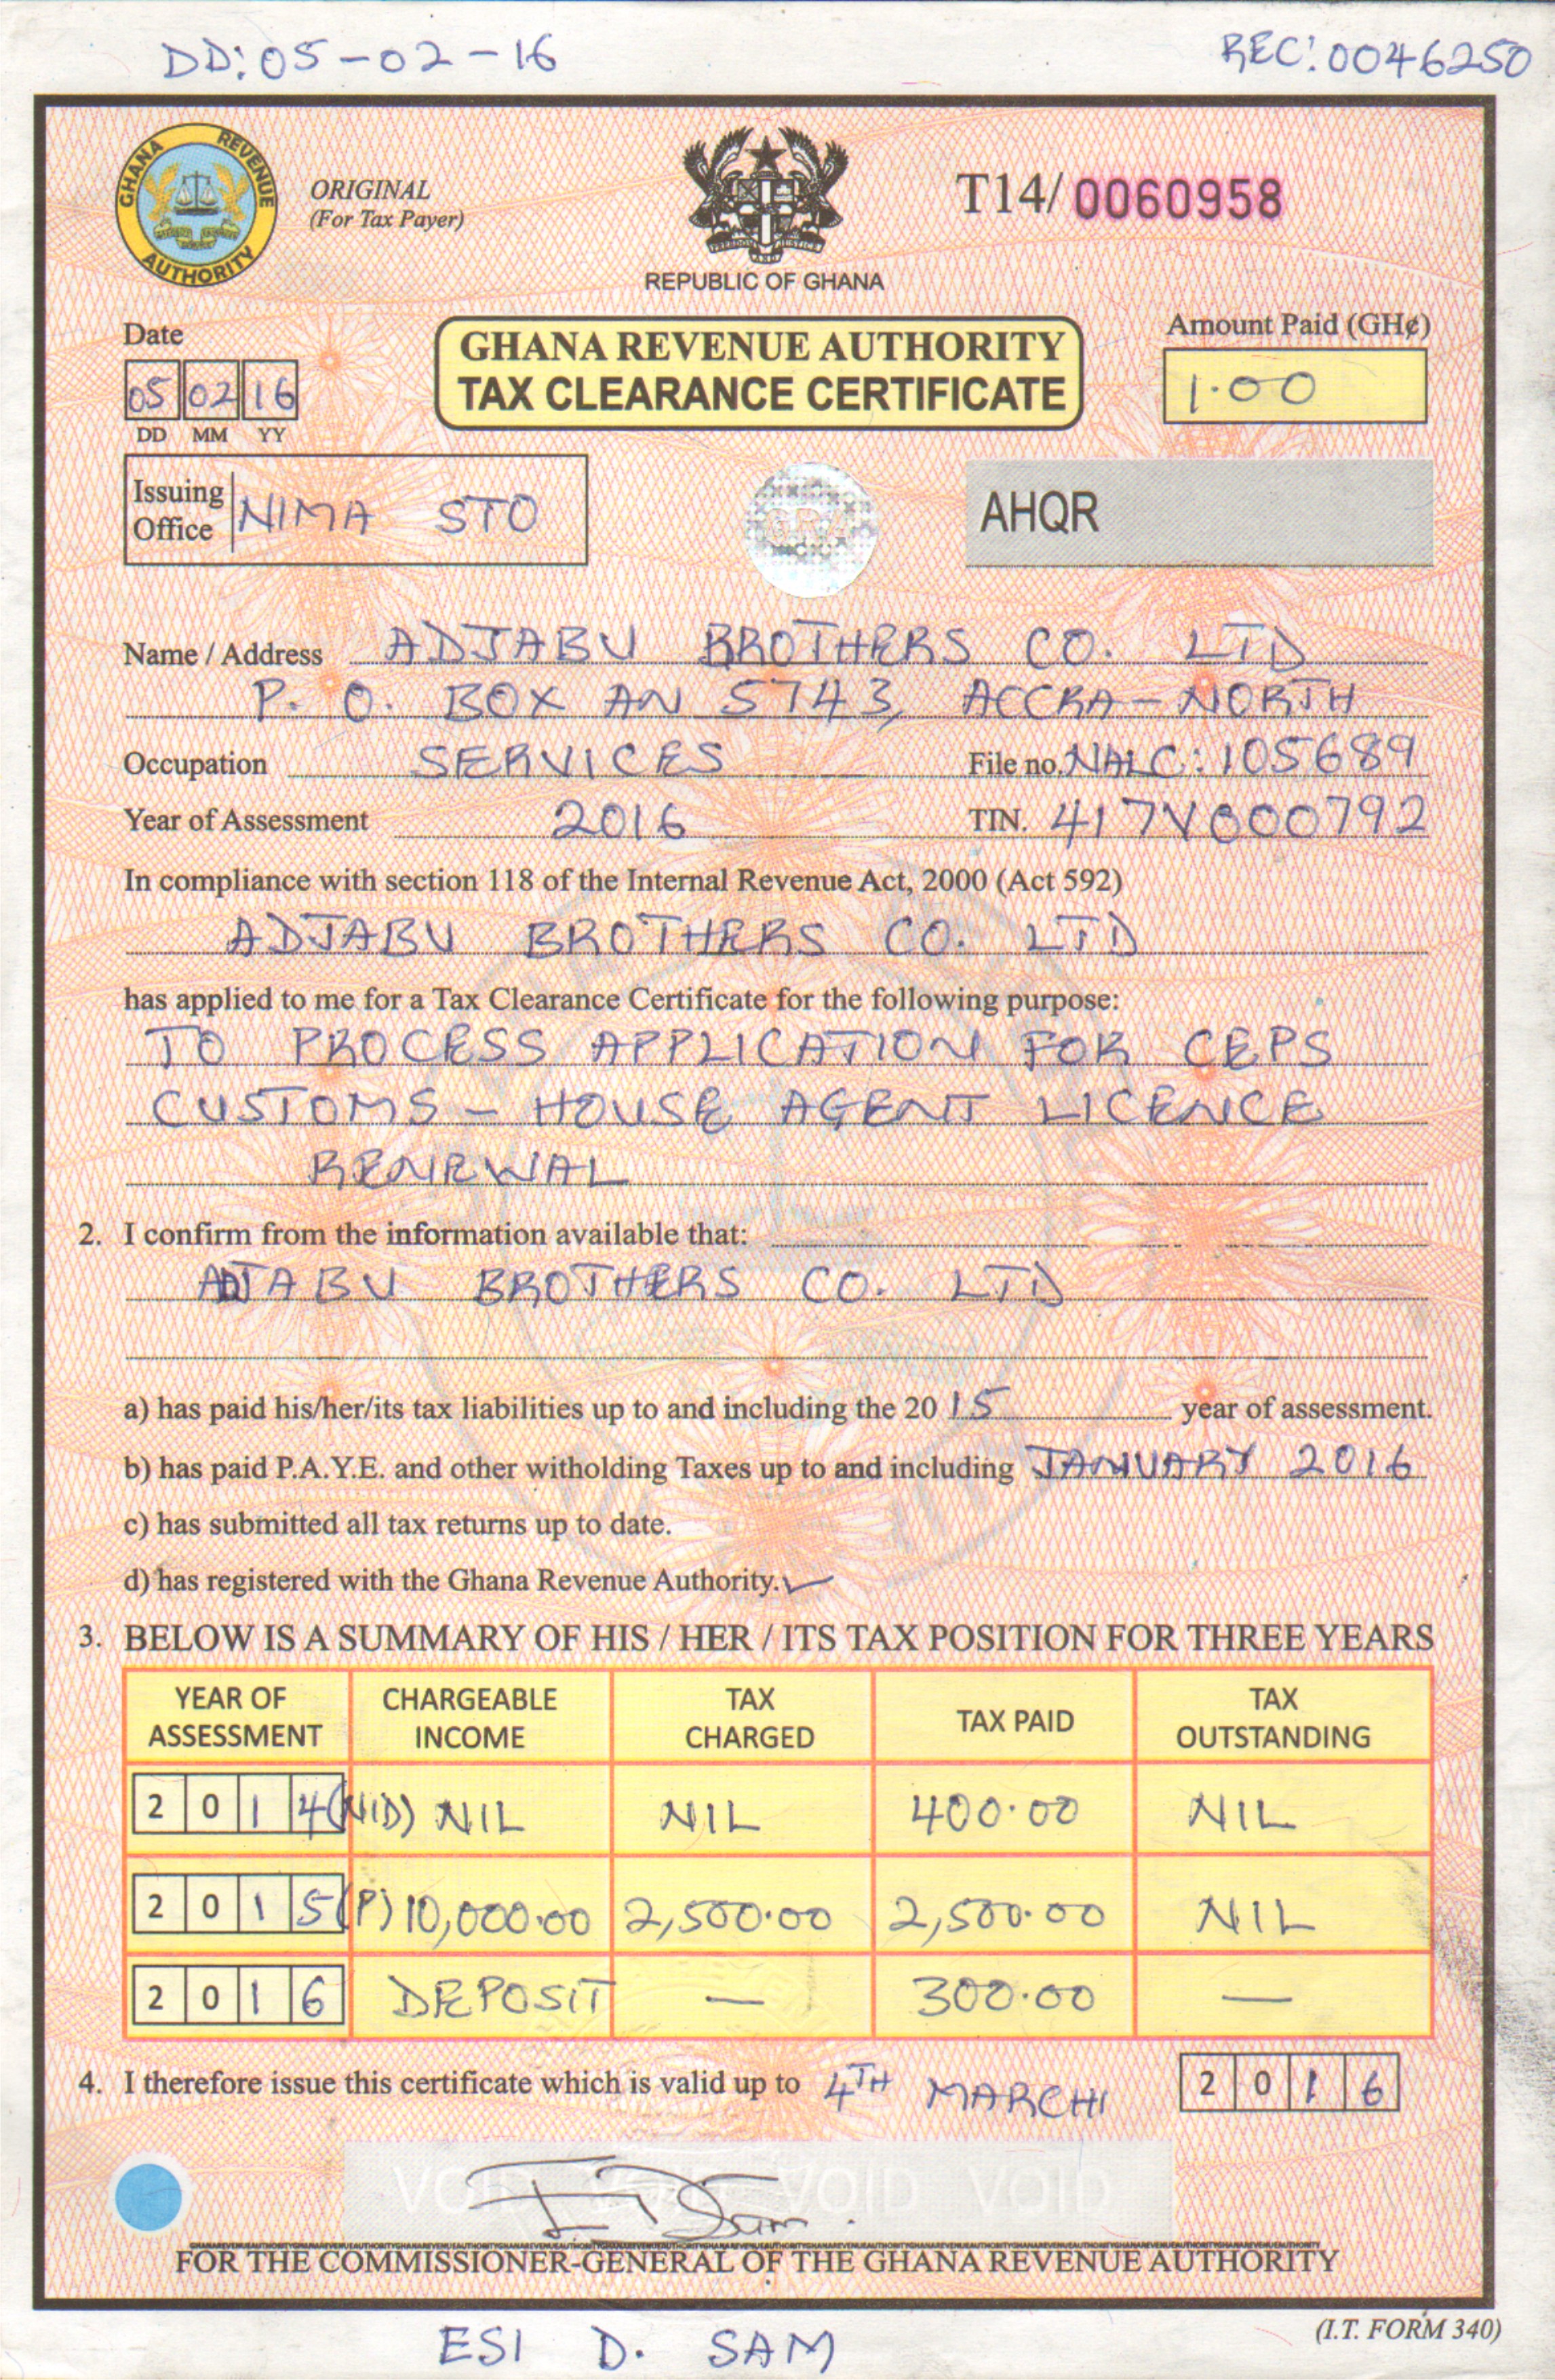 DD: 05-02-16
REC: 0046250
GHANA REVENUE AUTHORITY
ORIGINAL
(For Tax Payer)
T14/ 0060958
FREEDOM AND JUSTICE
REPUBLIC OF GHANA
Date
05 02 16
DD MM YY
GHANA REVENUE AUTHORITY
TAX CLEARANCE CERTIFICATE
Amount Paid (GH¢)
1.00
Issuing Office NIMA STO
GRA
AHQR
Name / Address ADJABU BROTHERS CO. LTD
P. O. BOX AN 5743, ACCRA-NORTH
Occupation SERVICES File no. NALC: 105689
Year of Assessment 2016 TIN. 417V000792
In compliance with section 118 of the Internal Revenue Act, 2000 (Act 592)
ADJABU BROTHERS CO. LTD
has applied to me for a Tax Clearance Certificate for the following purpose:
TO PROCESS APPLICATION FOR CEPS
CUSTOMS - HOUSE AGENT LICENCE
RENEWAL
2. I confirm from the information available that:
ADJABU BROTHERS CO. LTD
a) has paid his/her/its tax liabilities up to and including the 20 15 year of assessment.
b) has paid P.A.Y.E. and other witholding Taxes up to and including JANUARY 2016
c) has submitted all tax returns up to date.
d) has registered with the Ghana Revenue Authority. ✓
3. BELOW IS A SUMMARY OF HIS / HER / ITS TAX POSITION FOR THREE YEARS
YEAR OF ASSESSMENT CHARGEABLE INCOME TAX CHARGED TAX PAID TAX OUTSTANDING
2014 (NID) NIL NIL 400.00 NIL
2015 (P) 10,000.00 2,500.00 2,500.00 NIL
2016 DEPOSIT — 300.00 —
4. I therefore issue this certificate which is valid up to 4TH MARCH 2016
VOID VOID VOID VOID
FOR THE COMMISSIONER-GENERAL OF THE GHANA REVENUE AUTHORITY
(I.T. FORM 340)
ESI D. SAM